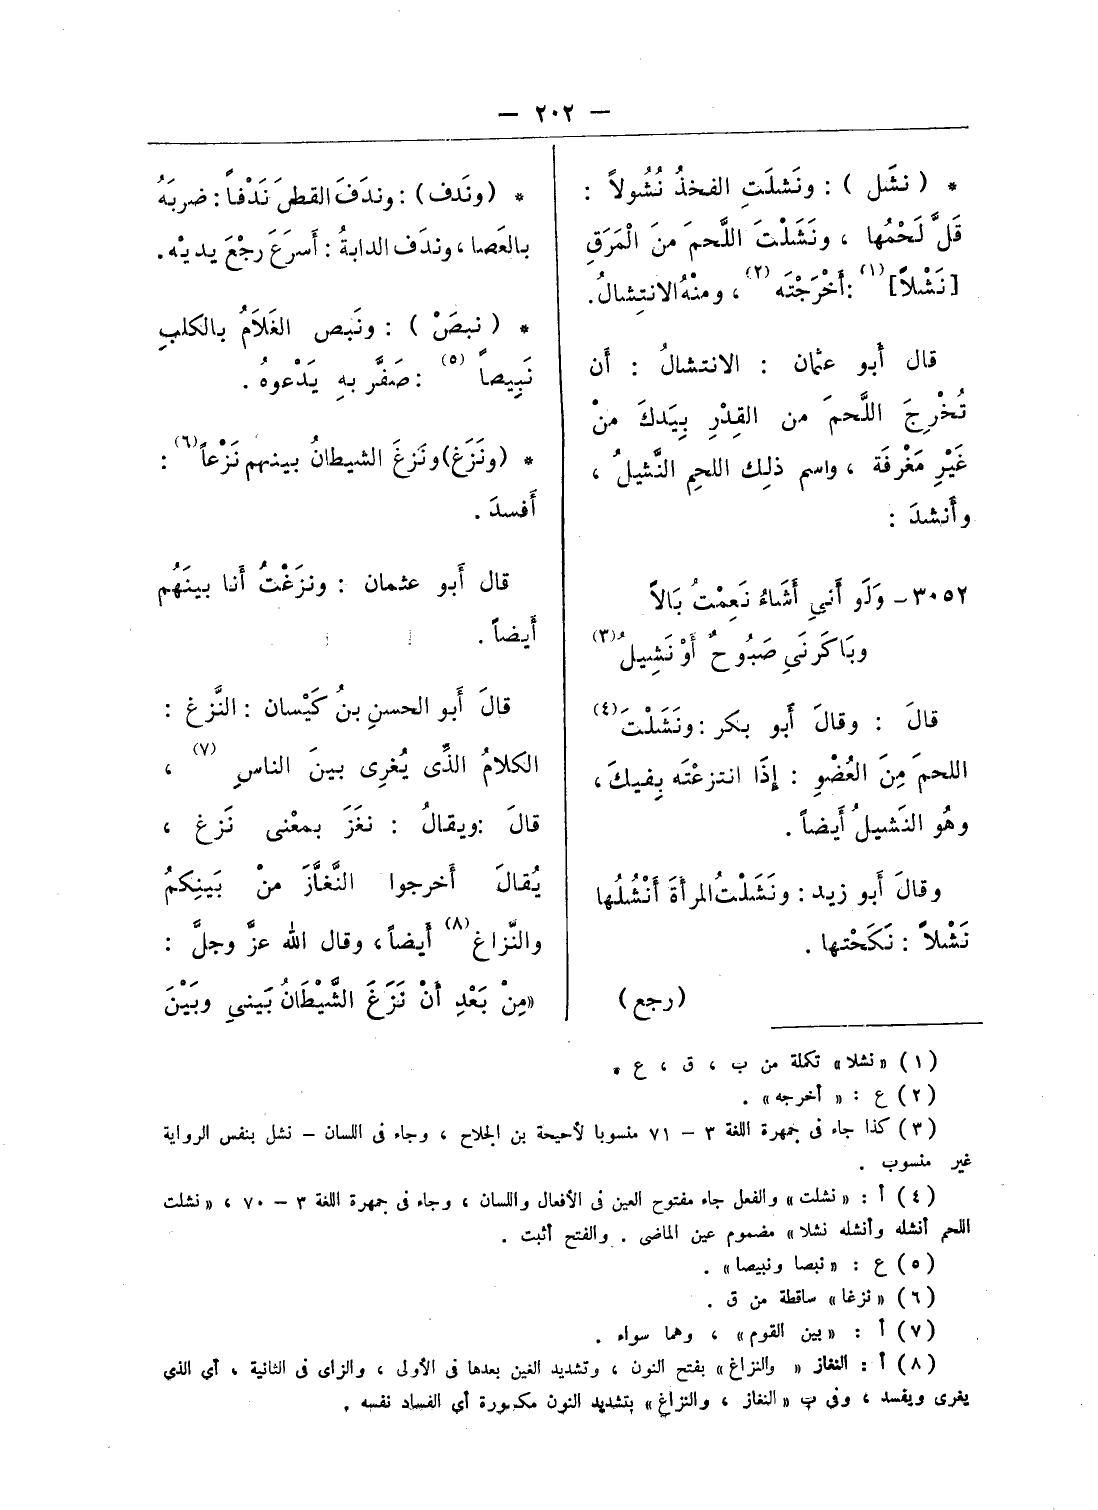 — ٢٠٢ —
* ( نشَل ) : ونَشلَتِ الفخذُ نُشُولاً :
قَلَّ لَحْمُها ، ونَشَلْتَ اللَّحمَ منَ الْمَرَقِ
[نَشْلاً] (١) : أَخْرَجْتَه (٢) ، ومنْهُ الانتِشالُ.
قال أَبو عثمان : الانتشالُ : أَن
تُخْرِجَ اللَّحمَ من القِدْرِ بِيَدكَ منْ
غَيْرِ مَغْرفَة ، واسم ذلِك اللحِم النَّشيلُ ،
وأَنشدَ :
٣٠٥٢ – وَلَو أَنيِ أَشَاءُ نَعِمْتُ بَالاً
وبَاكَرنَيِ صَبُوحٌ أَوْ نَشِيلُ (٣)
قالَ : وقالَ أَبو بكر : ونَشَلْتَ (٤)
اللحمَ مِنَ العُضْوِ : إِذَا انتزعْتَه بِفيكَ ،
وهُو النَشيلُ أَيضاً .
وقالَ أَبو زيد : ونَشَلْتُ المرأَةَ أَنْشُلُها
نَشْلاً : نَكَحْتها .
(رجع)
* (ونَدف) : وندفَ القطنَ نَدْفاً : ضربَهُ
بالعَصا ، وندَف الدابةُ : أَسرَعَ رجْعَ يديْه.
* ( نبصَ ) : ونَبص الغَلَامُ بالكلبِ
نَبِيصاً (٥) : صَفَّر بهِ يَدْعوهُ .
* (ونَزَغ) ونَزغَ الشيطانُ بينهم نَزْغاً (٦) :
أَفسدَ .
قال أَبو عثمان : ونزَغْتُ أَنا بينَهُم
أَيضاً .
قالَ أَبو الحسنِ بنُ كَيْسان : النَّزغ :
الكلامُ الذَّى يُغرِى بينَ الناسِ (٧) ،
قالَ : ويقالُ : نغَزَ بمعْنى نَزغ ،
يُقالَ أَخرجوا النَّغَّازَ منْ بَينِكمُ
والنَّزاغ (٨) أَيضاً ، وقال الله عزَّ وجلَّ :
«مِنْ بَعْدِ أَنْ نَزَغَ الشَّيْطَانُ بَيْنيِ وبَيْنَ
(١) «نشلا» تكملة من ب ، ق ، ع .
(٢) ع : « أخرجه» .
(٣) كذا جاء فى جمهرة اللغة ٣ – ٧١ منسوبا لأحيحة بن الجلاح ، وجاء فى اللسان – نشل بنفس الرواية
غير منسوب .
(٤) أ : «نشلت» والفعل جاء مفتوح العين فى الأفعال واللسان ، وجاء فى جمهرة اللغة ٣ – ٧٠ ، «نشلت
اللحم أنشله وأنشله نشلا» مضموم عين الماضى . والفتح أثبت .
(٥) ع : «نبصا ونبيصا» .
(٦) «نزغا» ساقطة من ق .
(٧) أ : «بين القوم» ، وهما سواء .
(٨) أ : النغاز « والنزاغ» بفتح النون ، وتشديد الغين بعدها فى الأولى ، والزاى فى الثانية ، أي الذي
يغرى ويفسد ، وفى ب «النغاز ، والنزاغ» بتشديد النون مكسورة أي الفساد نفسه .